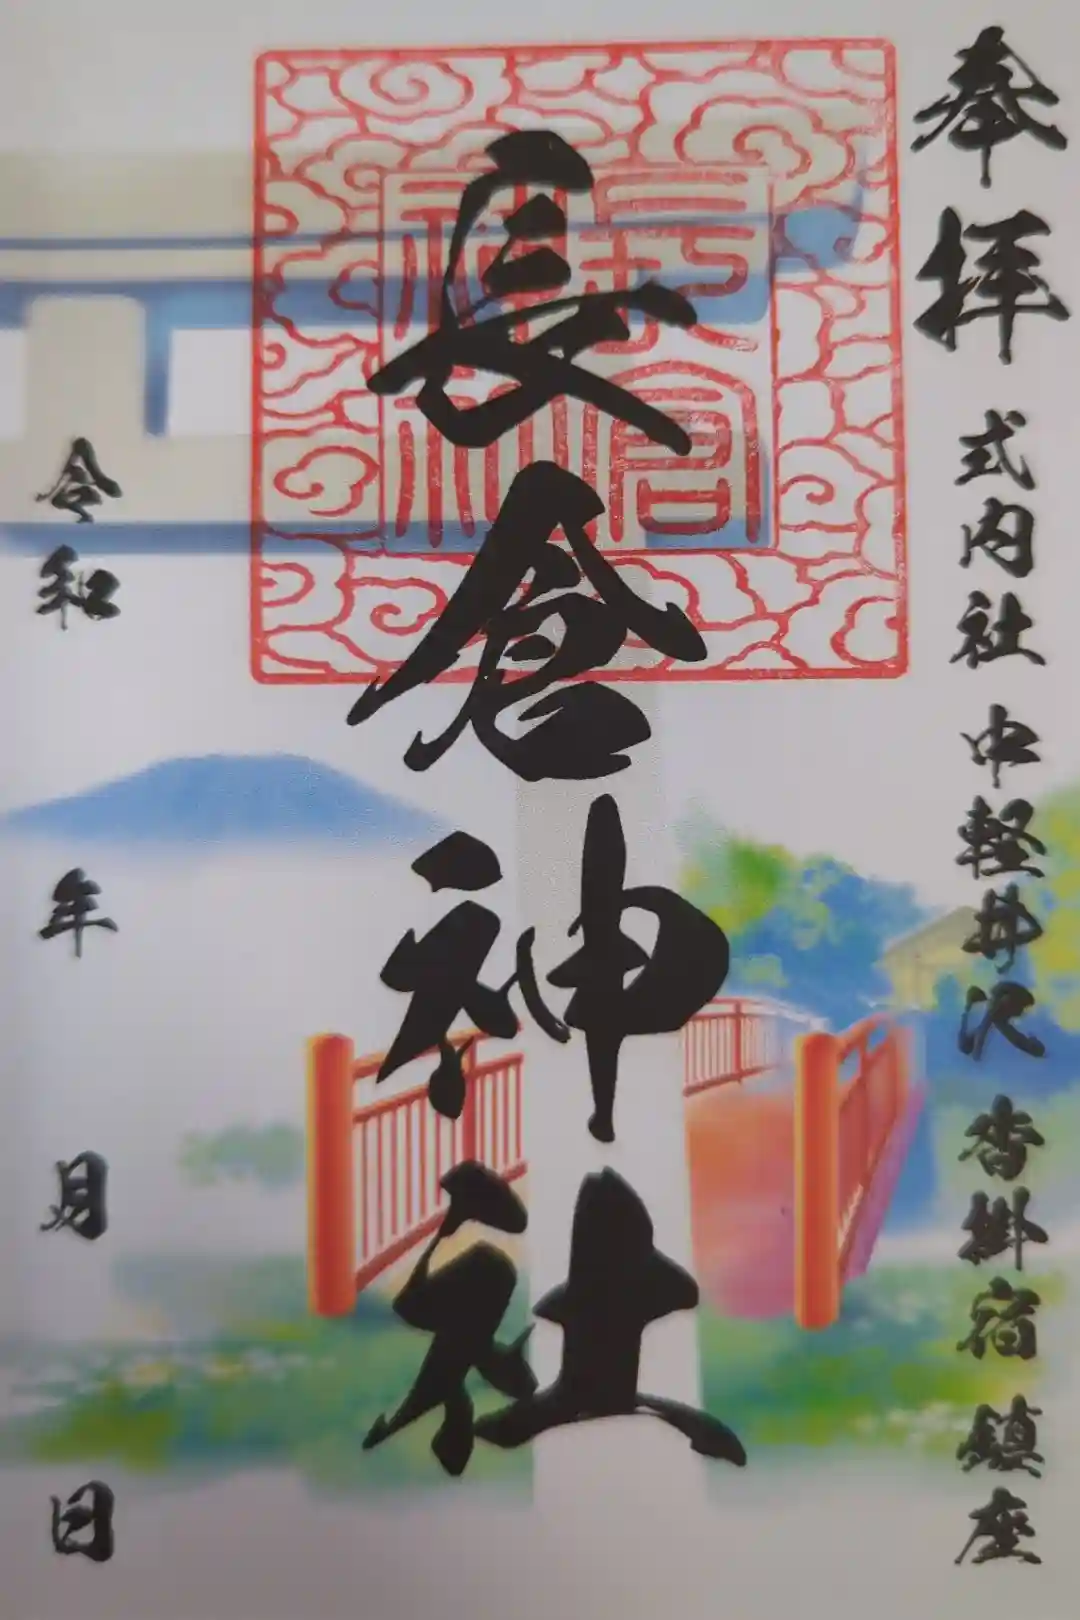 奉拝
式内社 中軽井沢 沓掛宿 鎮座
長倉神社
長倉神社
令和 年 月 日